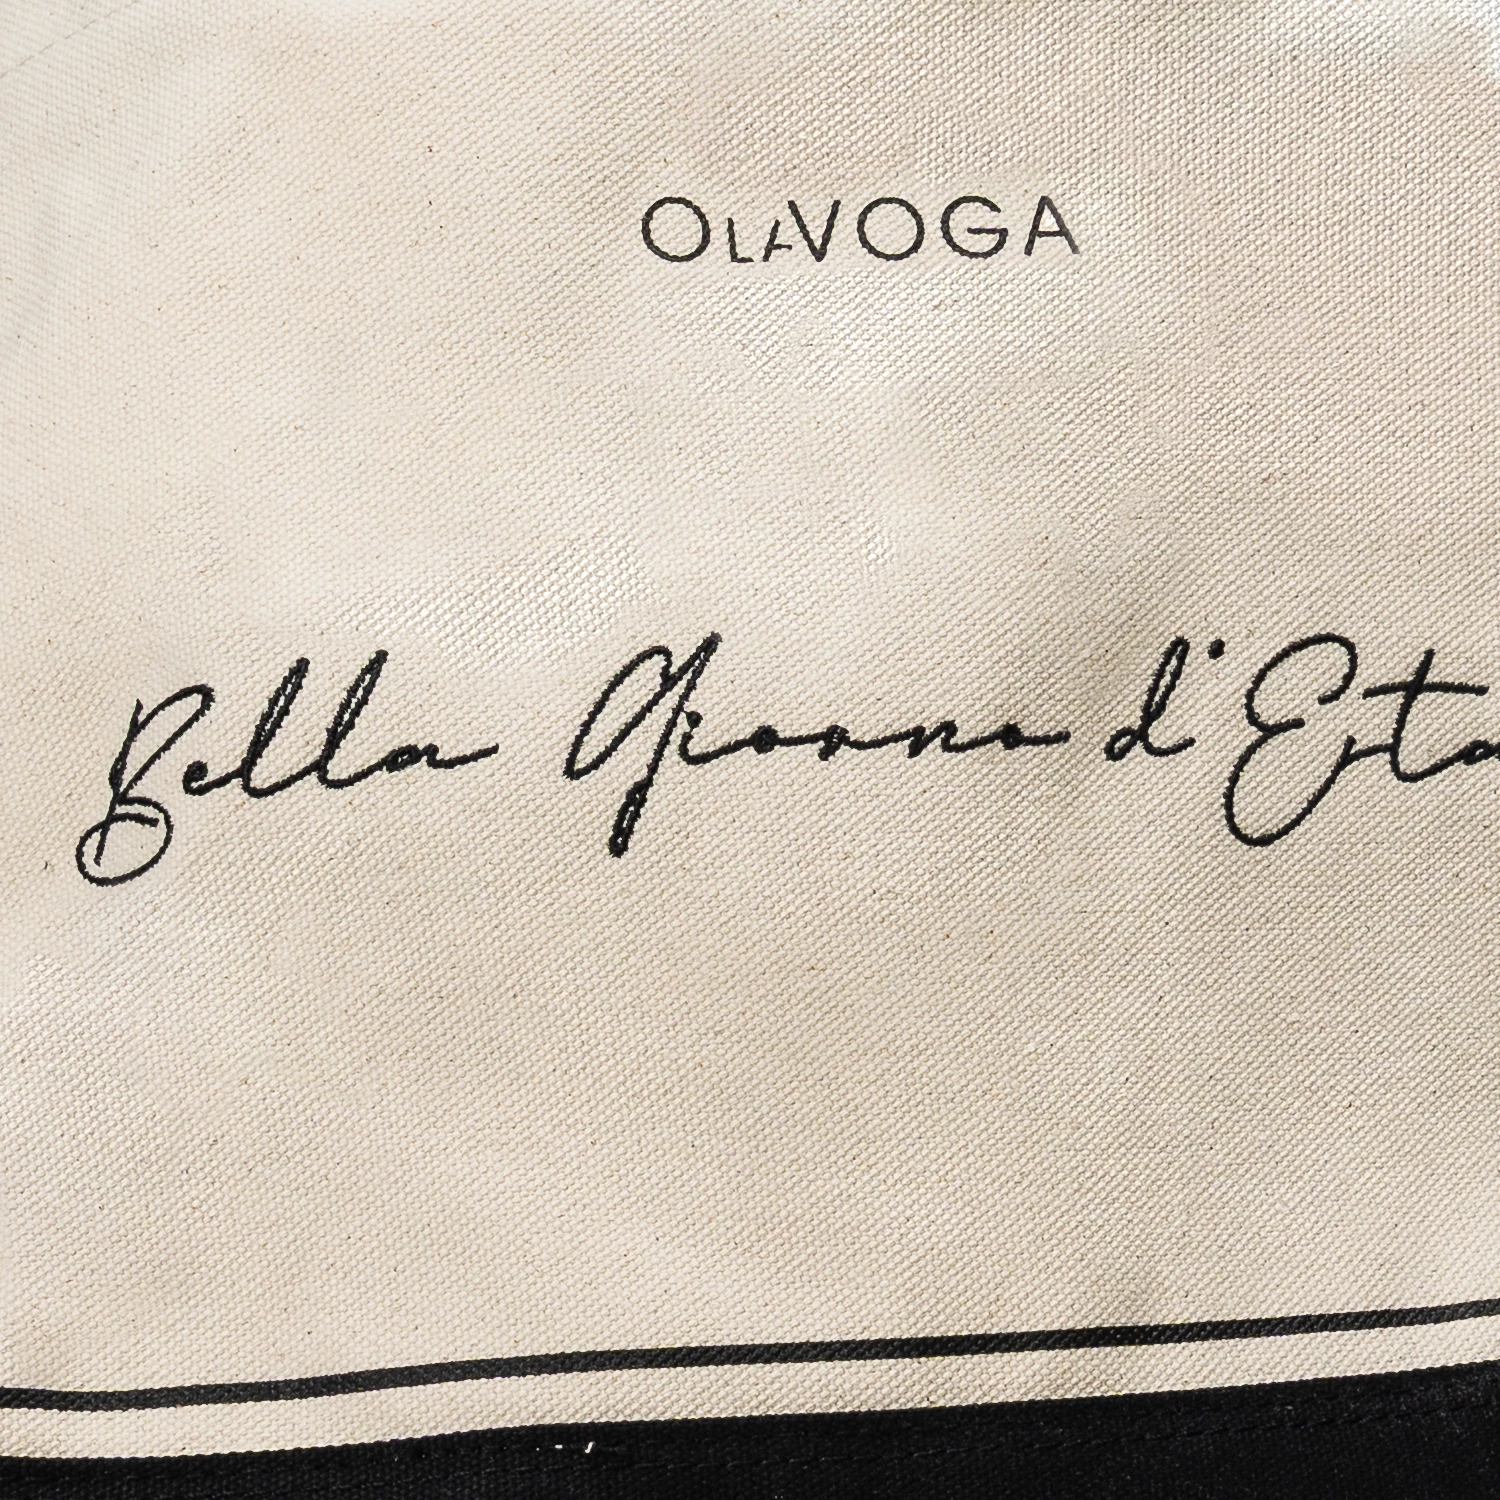 OLAVOGA
Bella Giorno d'Esta